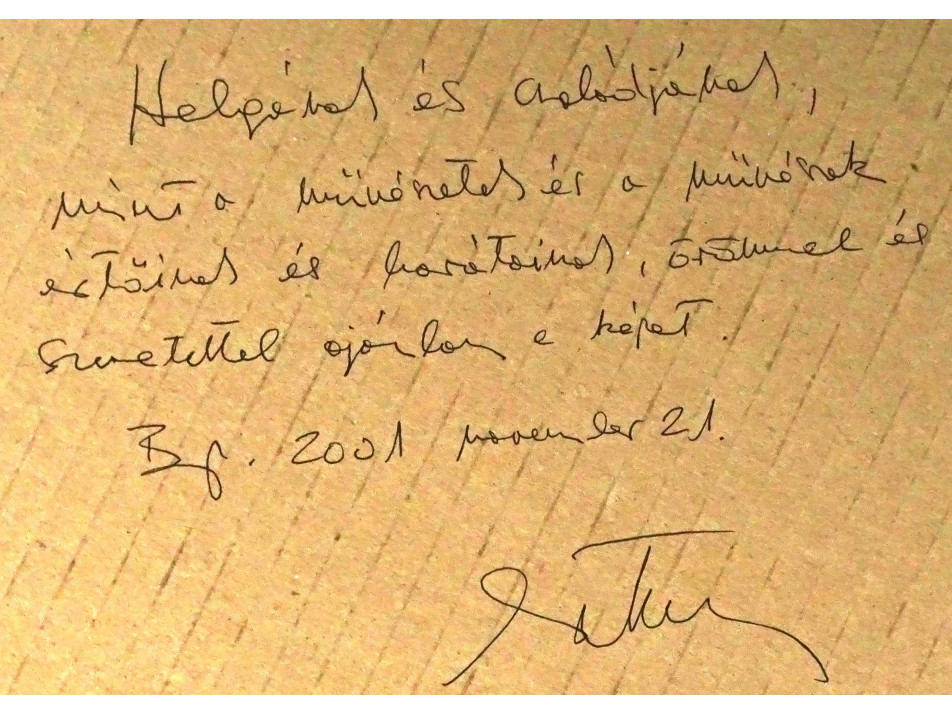 Helgának és családjának,
mint a művészetek és a művészek
értőinek és barátainak, örömmel és
szeretettel ajánlom e képet.
Bp. 2001 november 21.